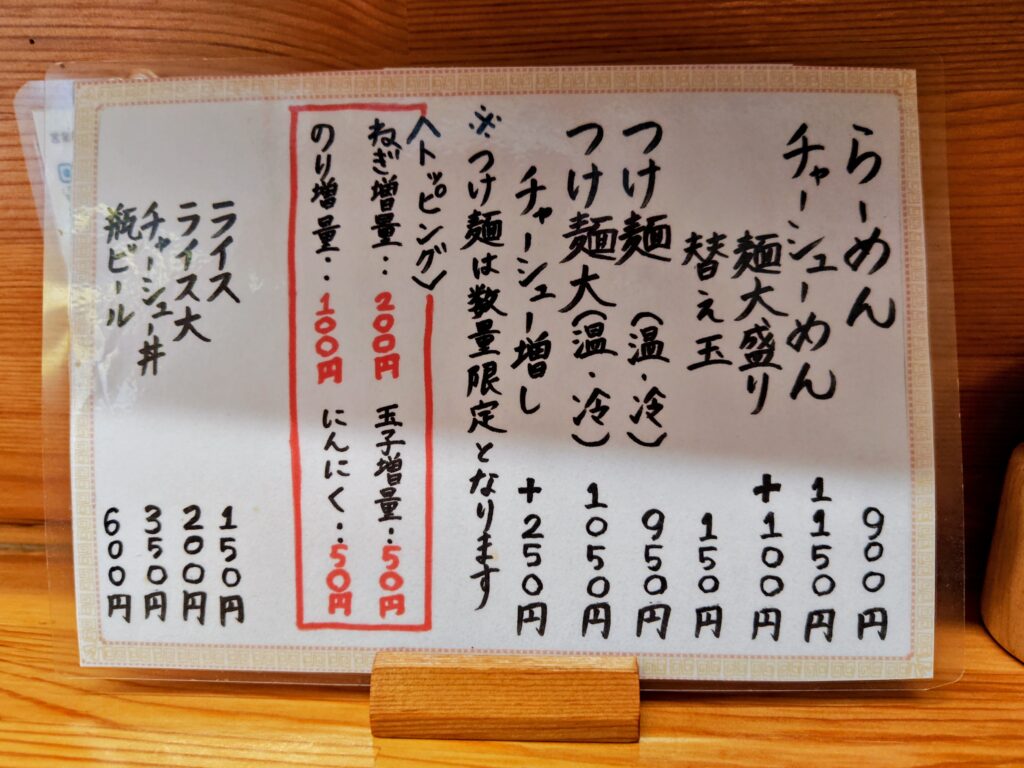 らーめん 900円
チャーシューめん 1150円
麺大盛り +100円
替え玉 150円
つけ麺 (温・冷) 950円
つけ麺大(温・冷) 1050円
チャーシュー増し +250円
※つけ麺は数量限定となります
〈トッピング〉
ねぎ増量‥200円 玉子増量‥50円
のり増量‥100円 にんにく‥50円
ライス 150円
ライス大 200円
チャーシュー丼 350円
瓶ビール 600円